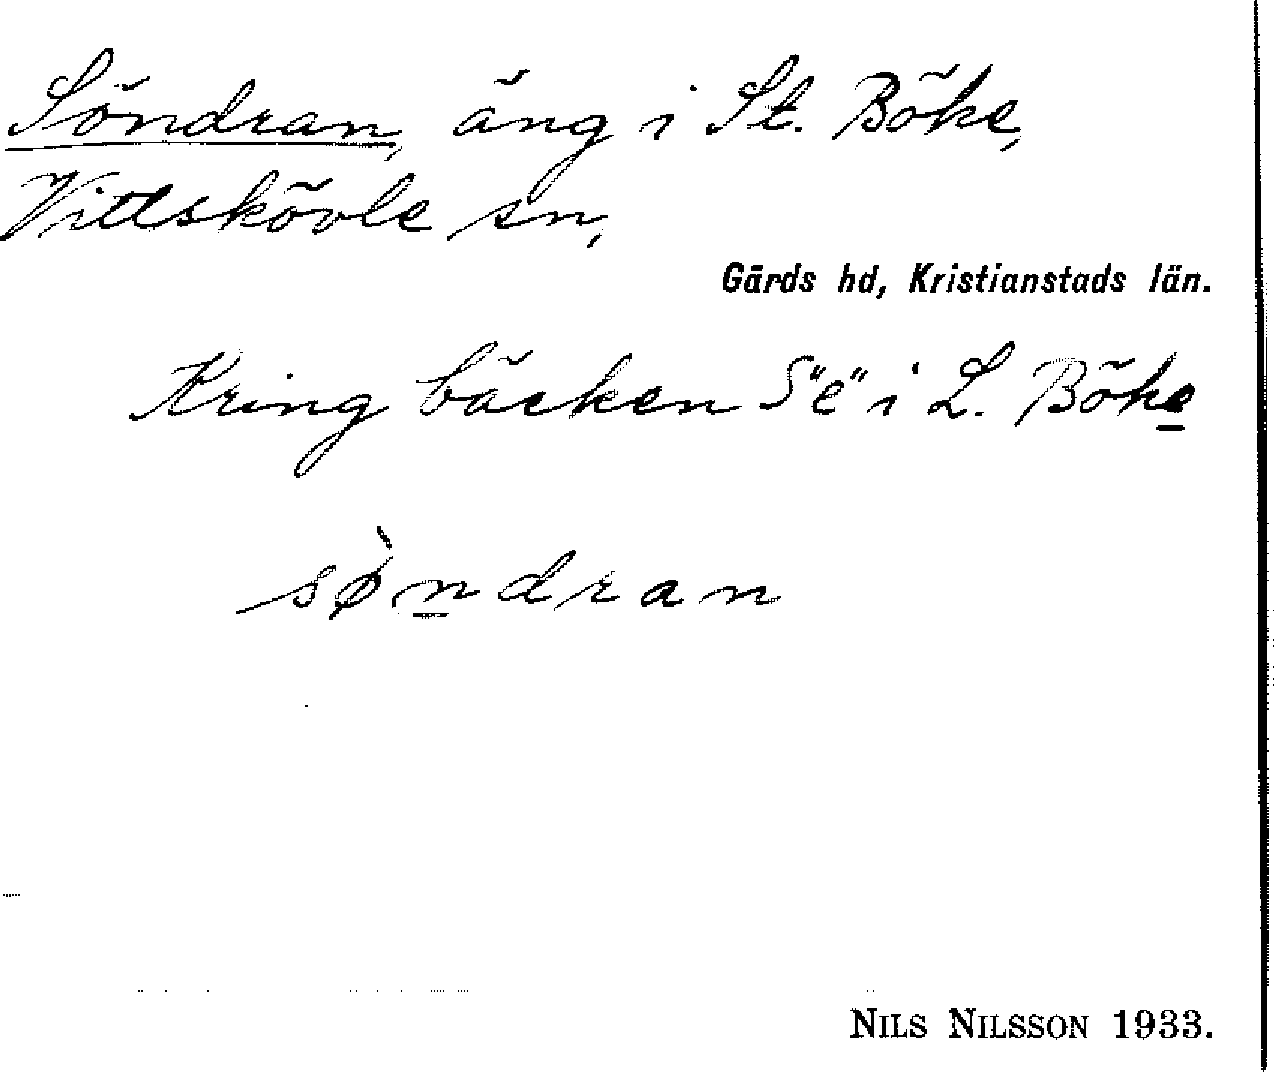 Söndran, äng i St. Böke,
Vittskövle sn,
Gärds hd, Kristianstads län.
Kring bäcken S "e" i L. Böke
sø̀ndran
NILS NILSSON 1933.